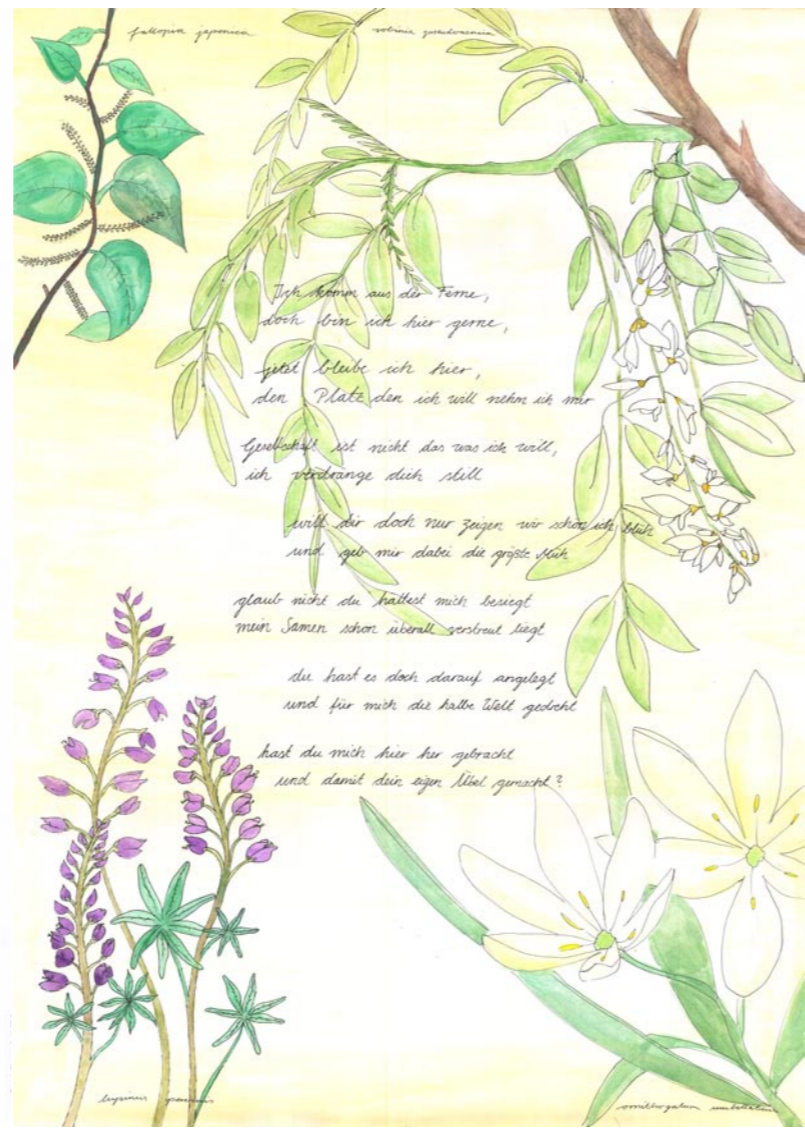 fallopia japonica
robinia pseudoacacia
Ich komm aus der Ferne,
doch bin ich hier gerne,
jetzt bleibe ich hier,
den Platz den ich will nehm ich mir
Gesellschaft ist nicht das was ich will,
ich verdränge dich still
will dir doch nur zeigen wir schön ich blüh
und geb mir dabei die größte Müh
glaub nicht du hättest mich besiegt
mein Samen schon überall verstreut liegt
du hast es doch darauf angelegt
und für mich die halbe Welt gedreht
hast du mich hier her gebracht
und damit dein eigen Übel gemacht?
lupinus
ornithogalum umbellatum